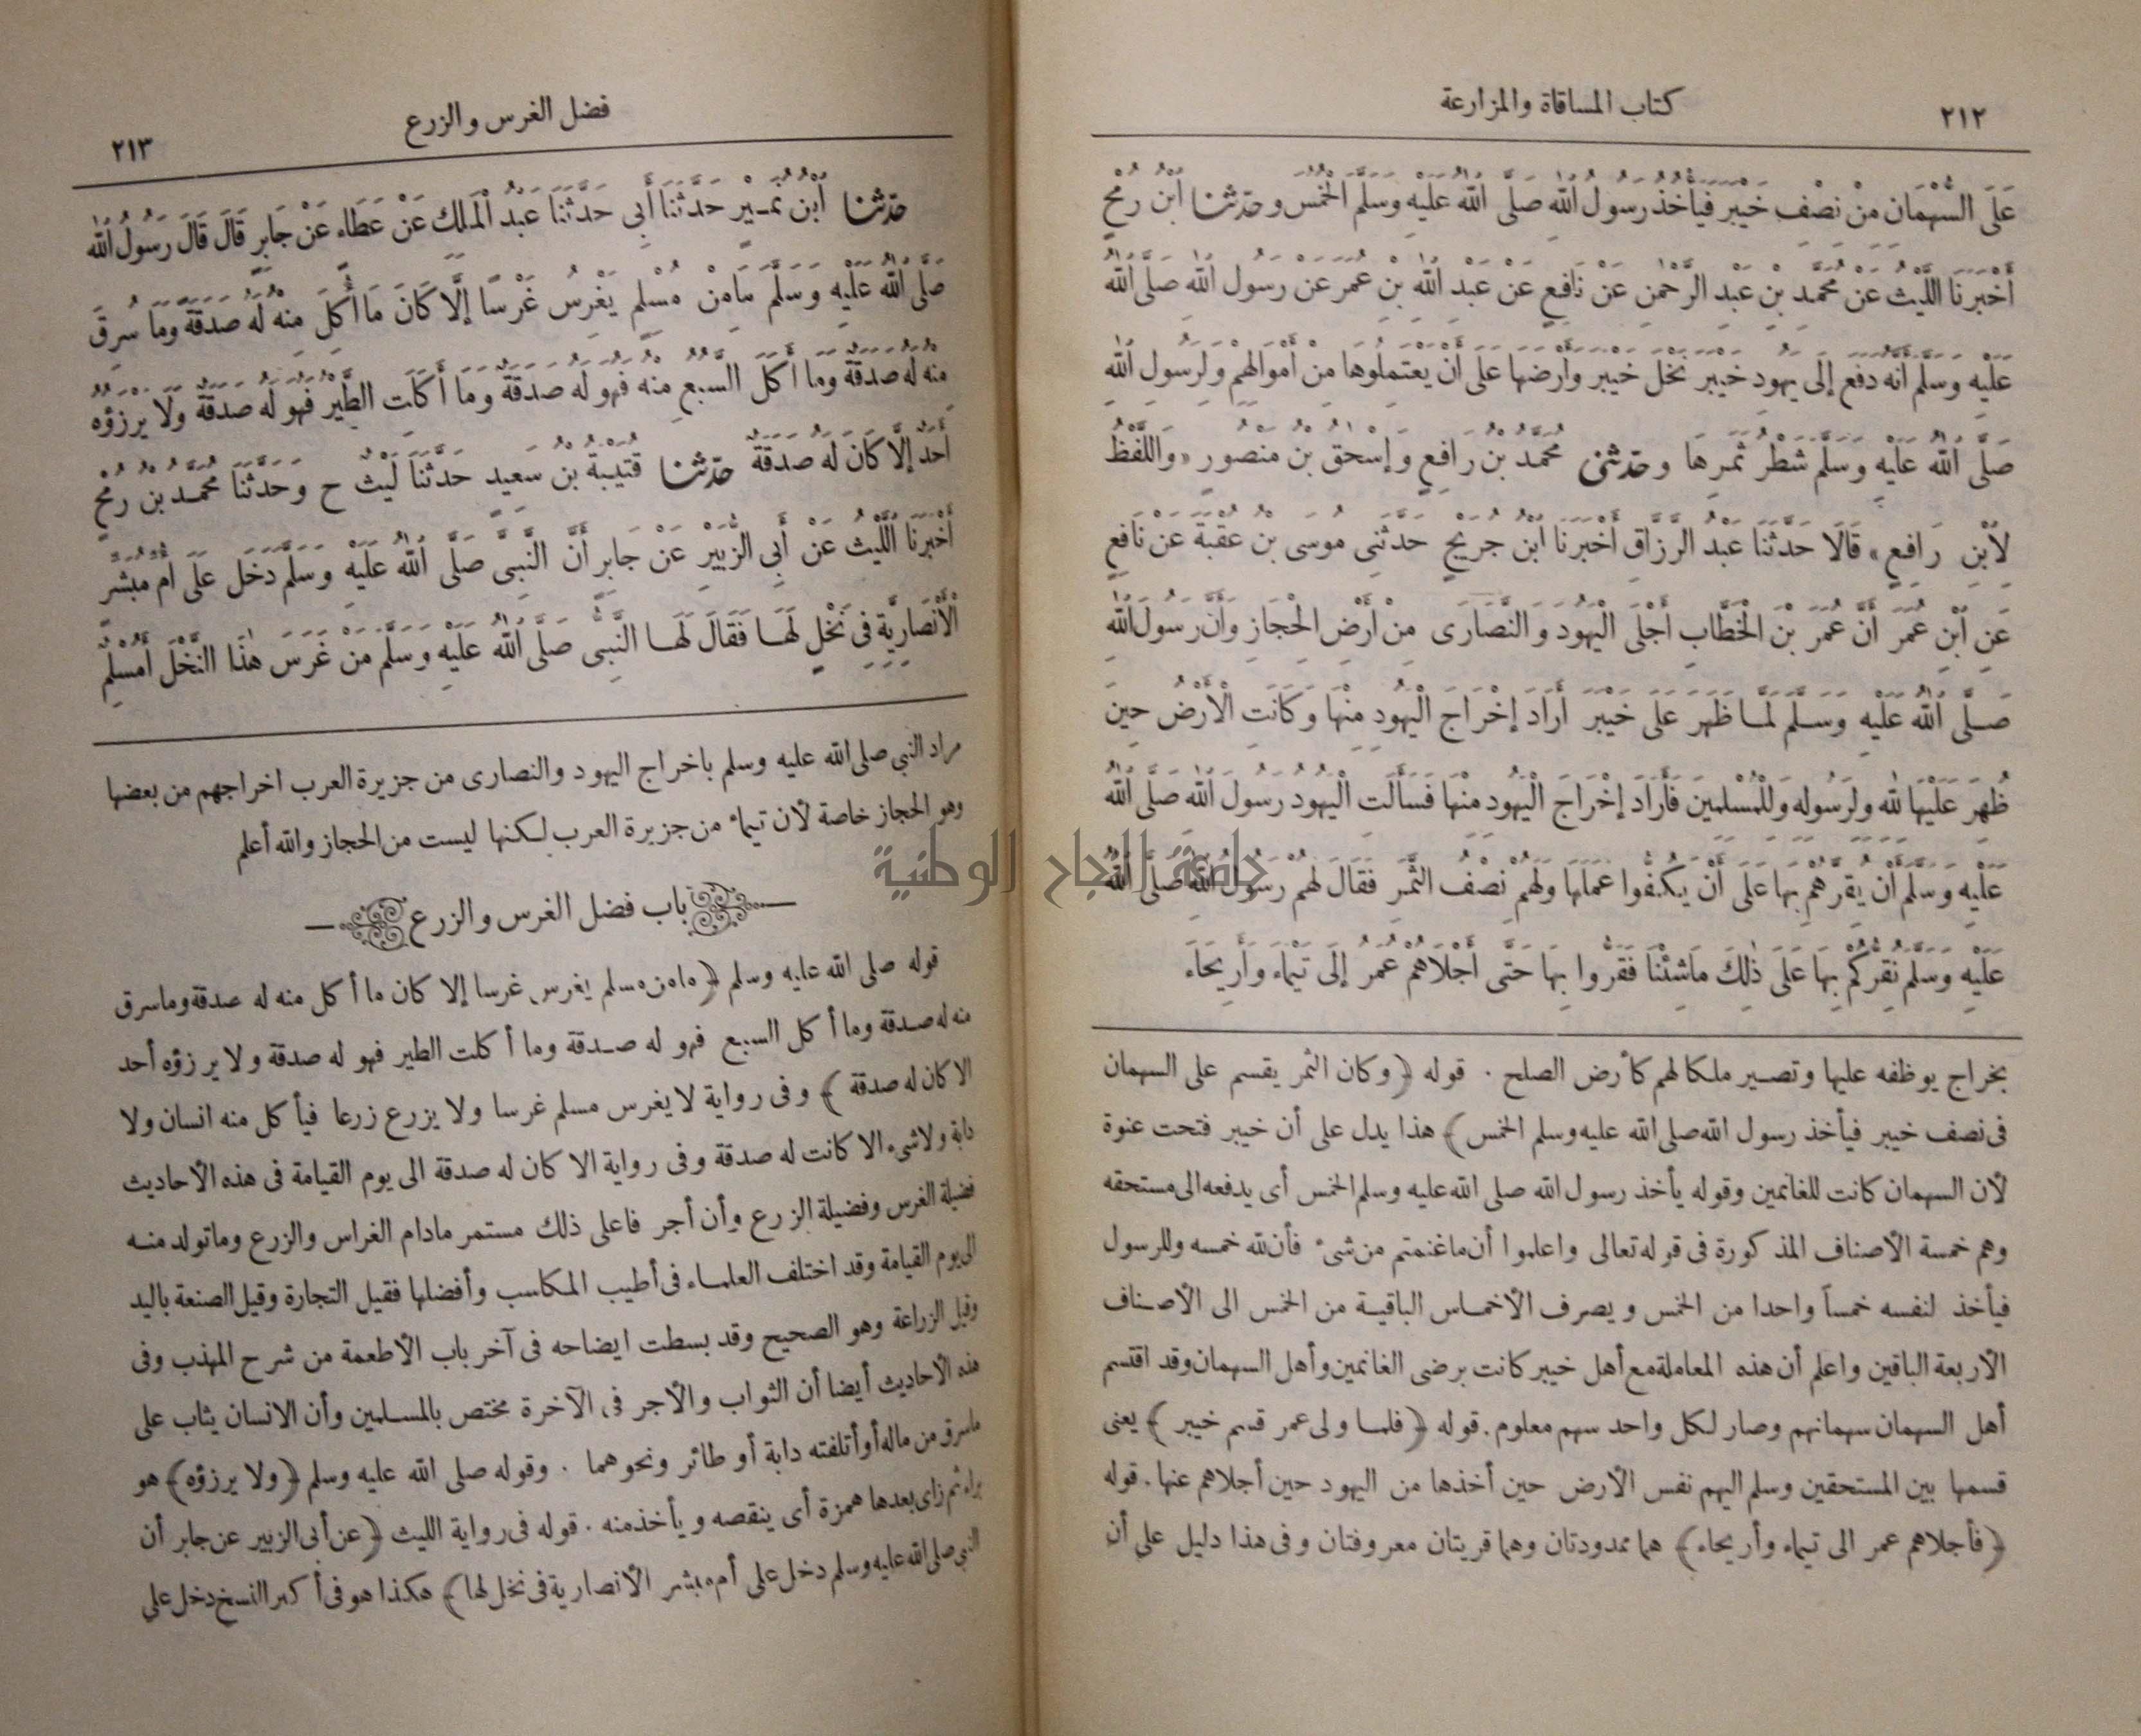 ٢١٢
كتاب المساقاة والمزارعة
عَلَى السُّهْمَانِ مِنْ نِصْفِ خَيْبَرَ فَيَأْخُذُ رَسُولُ اللهِ صَلَّى اللهُ عَلَيْهِ وَسَلَّمَ الْخُمُسَ وحدثنا ابْنُ رُمْحٍ
أَخْبَرَنَا اللَّيْثُ عَنْ مُحَمَّدِ بْنِ عَبْدِ الرَّحْمٰنِ عَنْ نَافِعٍ عَنْ عَبْدِ اللهِ بْنِ عُمَرَ عَنْ رَسُولِ اللهِ صَلَّى اللهُ
عَلَيْهِ وَسَلَّمَ أَنَّهُ دَفَعَ إِلَى يَهُودِ خَيْبَرَ نَخْلَ خَيْبَرَ وَأَرْضَهَا عَلَى أَنْ يَعْتَمِلُوهَا مِنْ أَمْوَالِهِمْ وَلِرَسُولِ اللهِ
صَلَّى اللهُ عَلَيْهِ وَسَلَّمَ شَطْرُ ثَمَرِهَا وحدثنى مُحَمَّدُ بْنُ رَافِعٍ وَإِسْحٰقُ بْنُ مَنْصُورٍ «وَاللَّفْظُ
لِابْنِ رَافِعٍ» قَالَا حَدَّثَنَا عَبْدُ الرَّزَّاقِ أَخْبَرَنَا ابْنُ جُرَيْجٍ حَدَّثَنِى مُوسَى بْنُ عُقْبَةَ عَنْ نَافِعٍ
عَنِ ابْنِ عُمَرَ أَنَّ عُمَرَ بْنَ الْخَطَّابِ أَجْلَى الْيَهُودَ وَالنَّصَارَى مِنْ أَرْضِ الْحِجَازِ وَأَنَّ رَسُولَ اللهِ
صَلَّى اللهُ عَلَيْهِ وَسَلَّمَ لَمَّا ظَهَرَ عَلَى خَيْبَرَ أَرَادَ إِخْرَاجَ الْيَهُودِ مِنْهَا وَكَانَتِ الْأَرْضُ حِينَ
ظُهِرَ عَلَيْهَا لِلهِ وَلِرَسُولِهِ وَلِلْمُسْلِمِينَ فَأَرَادَ إِخْرَاجَ الْيَهُودِ مِنْهَا فَسَأَلَتِ الْيَهُودُ رَسُولَ اللهِ صَلَّى اللهُ
عَلَيْهِ وَسَلَّمَ أَنْ يُقِرَّهُمْ بِهَا عَلَى أَنْ يَكْفُوا عَمَلَهَا وَلَهُمْ نِصْفُ الثَّمَرِ فَقَالَ لَهُمْ رَسُولُ اللهِ صَلَّى اللهُ
عَلَيْهِ وَسَلَّمَ نُقِرُّكُمْ بِهَا عَلَى ذٰلِكَ مَاشِئْنَا فَقَرُّوا بِهَا حَتَّى أَجْلَاهُمْ عُمَرُ إِلَى تَيْمَاءَ وَأَرِيحَاءَ
بخراج يوظفه عليها وتصير ملكا لهم كأرض الصلح . قوله ﴿وكان الثمر يقسم على السهمان
فى نصف خيبر فيأخذ رسول الله صلى الله عليه وسلم الخمس﴾ هذا يدل على أن خيبر فتحت عنوة
لأن السهمان كانت للغانمين وقوله يأخذ رسول الله صلى الله عليه وسلم الخمس أى يدفعه الى مستحقه
وهم خمسة الأصناف المذكورة فى قوله تعالى واعلموا أن ماغنمتم من شىء فأن لله خمسه وللرسول
فيأخذ لنفسه خمساً واحدا من الخمس ويصرف الأخماس الباقية من الخمس الى الأصناف
الأربعة الباقين واعلم أن هذه المعاملة مع أهل خيبر كانت برضى الغانمين وأهل السهمان وقد اقتسم
أهل السهمان سهمانهم وصار لكل واحد سهم معلوم . قوله ﴿فلما ولى عمر قسم خيبر﴾ يعنى
قسمها بين المستحقين وسلم اليهم نفس الأرض حين أخذها من اليهود حين أجلاهم عنها . قوله
﴿فأجلاهم عمر الى تيماء وأريحاء﴾ هما ممدودتان وهما قريتان معروفتان وفى هذا دليل على أن
فضل الغرس والزرع
٢١٣
حدثنا ابْنُ نُمَيْرٍ حَدَّثَنَا أَبِى حَدَّثَنَا عَبْدُ الْمَلِكِ عَنْ عَطَاءٍ عَنْ جَابِرٍ قَالَ قَالَ رَسُولُ اللهِ
صَلَّى اللهُ عَلَيْهِ وَسَلَّمَ مَامِنْ مُسْلِمٍ يَغْرِسُ غَرْسًا إِلَّا كَانَ مَا أُكِلَ مِنْهُ لَهُ صَدَقَةً وَمَا سُرِقَ
مِنْهُ لَهُ صَدَقَةٌ وَمَا أَكَلَ السَّبُعُ مِنْهُ فَهُوَ لَهُ صَدَقَةٌ وَمَا أَكَلَتِ الطَّيْرُ فَهُوَ لَهُ صَدَقَةٌ وَلَا يَرْزَؤُهُ
أَحَدٌ إِلَّا كَانَ لَهُ صَدَقَةٌ حدثنا قُتَيْبَةُ بْنُ سَعِيدٍ حَدَّثَنَا لَيْثٌ ح وَحَدَّثَنَا مُحَمَّدُ بْنُ رُمْحٍ
أَخْبَرَنَا اللَّيْثُ عَنْ أَبِى الزُّبَيْرِ عَنْ جَابِرٍ أَنَّ النَّبِىَّ صَلَّى اللهُ عَلَيْهِ وَسَلَّمَ دَخَلَ عَلَى أُمِّ مُبَشِّرٍ
الْأَنْصَارِيَّةِ فِى نَخْلٍ لَهَا فَقَالَ لَهَا النَّبِىُّ صَلَّى اللهُ عَلَيْهِ وَسَلَّمَ مَنْ غَرَسَ هٰذَا النَّخْلَ أَمُسْلِمٌ
مراد النبى صلى الله عليه وسلم باخراج اليهود والنصارى من جزيرة العرب اخراجهم من بعضها
وهو الحجاز خاصة لأن تيماء من جزيرة العرب لكنها ليست من الحجاز والله أعلم
باب فضل الغرس والزرع
قوله صلى الله عليه وسلم ﴿مامن مسلم يغرس غرسا إلا كان ما أكل منه له صدقة وماسرق
منه له صدقة وما أكل السبع فهو له صدقة وما أكلت الطير فهو له صدقة ولا يرزؤه أحد
الا كان له صدقة﴾ وفى رواية لا يغرس مسلم غرسا ولا يزرع زرعا فيأكل منه انسان ولا
دابة ولاشىء الا كانت له صدقة وفى رواية الا كان له صدقة الى يوم القيامة فى هذه الأحاديث
فضيلة الغرس وفضيلة الزرع وأن أجر فاعلى ذلك مستمر مادام الغراس والزرع وماتولد منه
الى يوم القيامة وقد اختلف العلماء فى أطيب المكاسب وأفضلها فقيل التجارة وقيل الصنعة باليد
وقيل الزراعة وهو الصحيح وقد بسطت ايضاحه فى آخر باب الأطعمة من شرح المهذب وفى
هذه الأحاديث أيضا أن الثواب والأجر فى الآخرة مختص بالمسلمين وأن الانسان يثاب على
ماسرق من ماله أو أتلفته دابة أو طائر ونحوهما . وقوله صلى الله عليه وسلم ﴿ولا يرزؤه﴾ هو
براء ثم زاى بعدها همزة أى ينقصه ويأخذ منه . قوله فى رواية الليث ﴿عن أبى الزبير عن جابر أن
النبى صلى الله عليه وسلم دخل على أم مبشر الأنصارية فى نخل لها﴾ هكذا هو فى أكثر النسخ دخل على
جامعة النجاح الوطنية